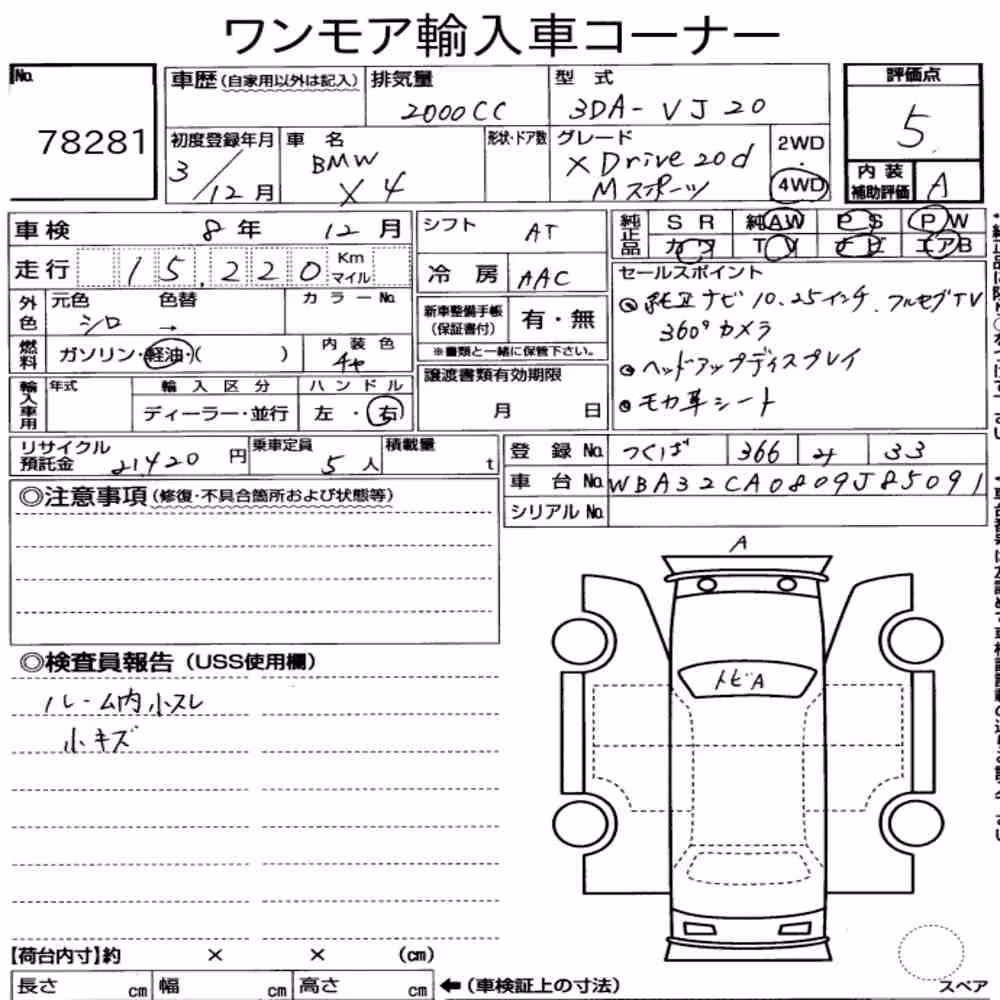 ワンモア輸入車コーナー
No. 78281
車歴(自家用以外は記入)
排気量 2000CC
型式 3DA-VJ20
評価点 5
初度登録年月 3/12月
車名 BMW X4
形状・ドア数
グレード X Drive 20d Mスポーツ
2WD・4WD
内装補助評価 A
車検 8年 12月
シフト AT
純正品 SR 純AW PS PW
カワ TV ナビ エアB
走行 15,220 Km マイル
冷房 AAC
セールスポイント
純正ナビ 10.25インチ フルセグTV
360°カメラ
ヘッドアップディスプレイ
モカ革シート
外色 元色 シロ 色替 → カラーNo.
新車整備手帳(保証書付) 有・無
※書類と一緒に保管下さい。
燃料 ガソリン・軽油・( )
内装色 チャ
譲渡書類有効期限 月 日
輸入車用 年式 輸入区分 ディーラー・並行 ハンドル 左・右
リサイクル預託金 21420円
乗車定員 5人
積載量 t
登録No. つくば 366 33
車台No. WBA32CA0809J85091
シリアルNo.
◎注意事項(修復・不具合箇所および状態等)
A
◎検査員報告(USS使用欄)
トビA
ルーム内小スレ
小キズ
【荷台内寸】約 × × (cm)
長さ cm 幅 cm 高さ cm ←(車検証上の寸法)
スペア